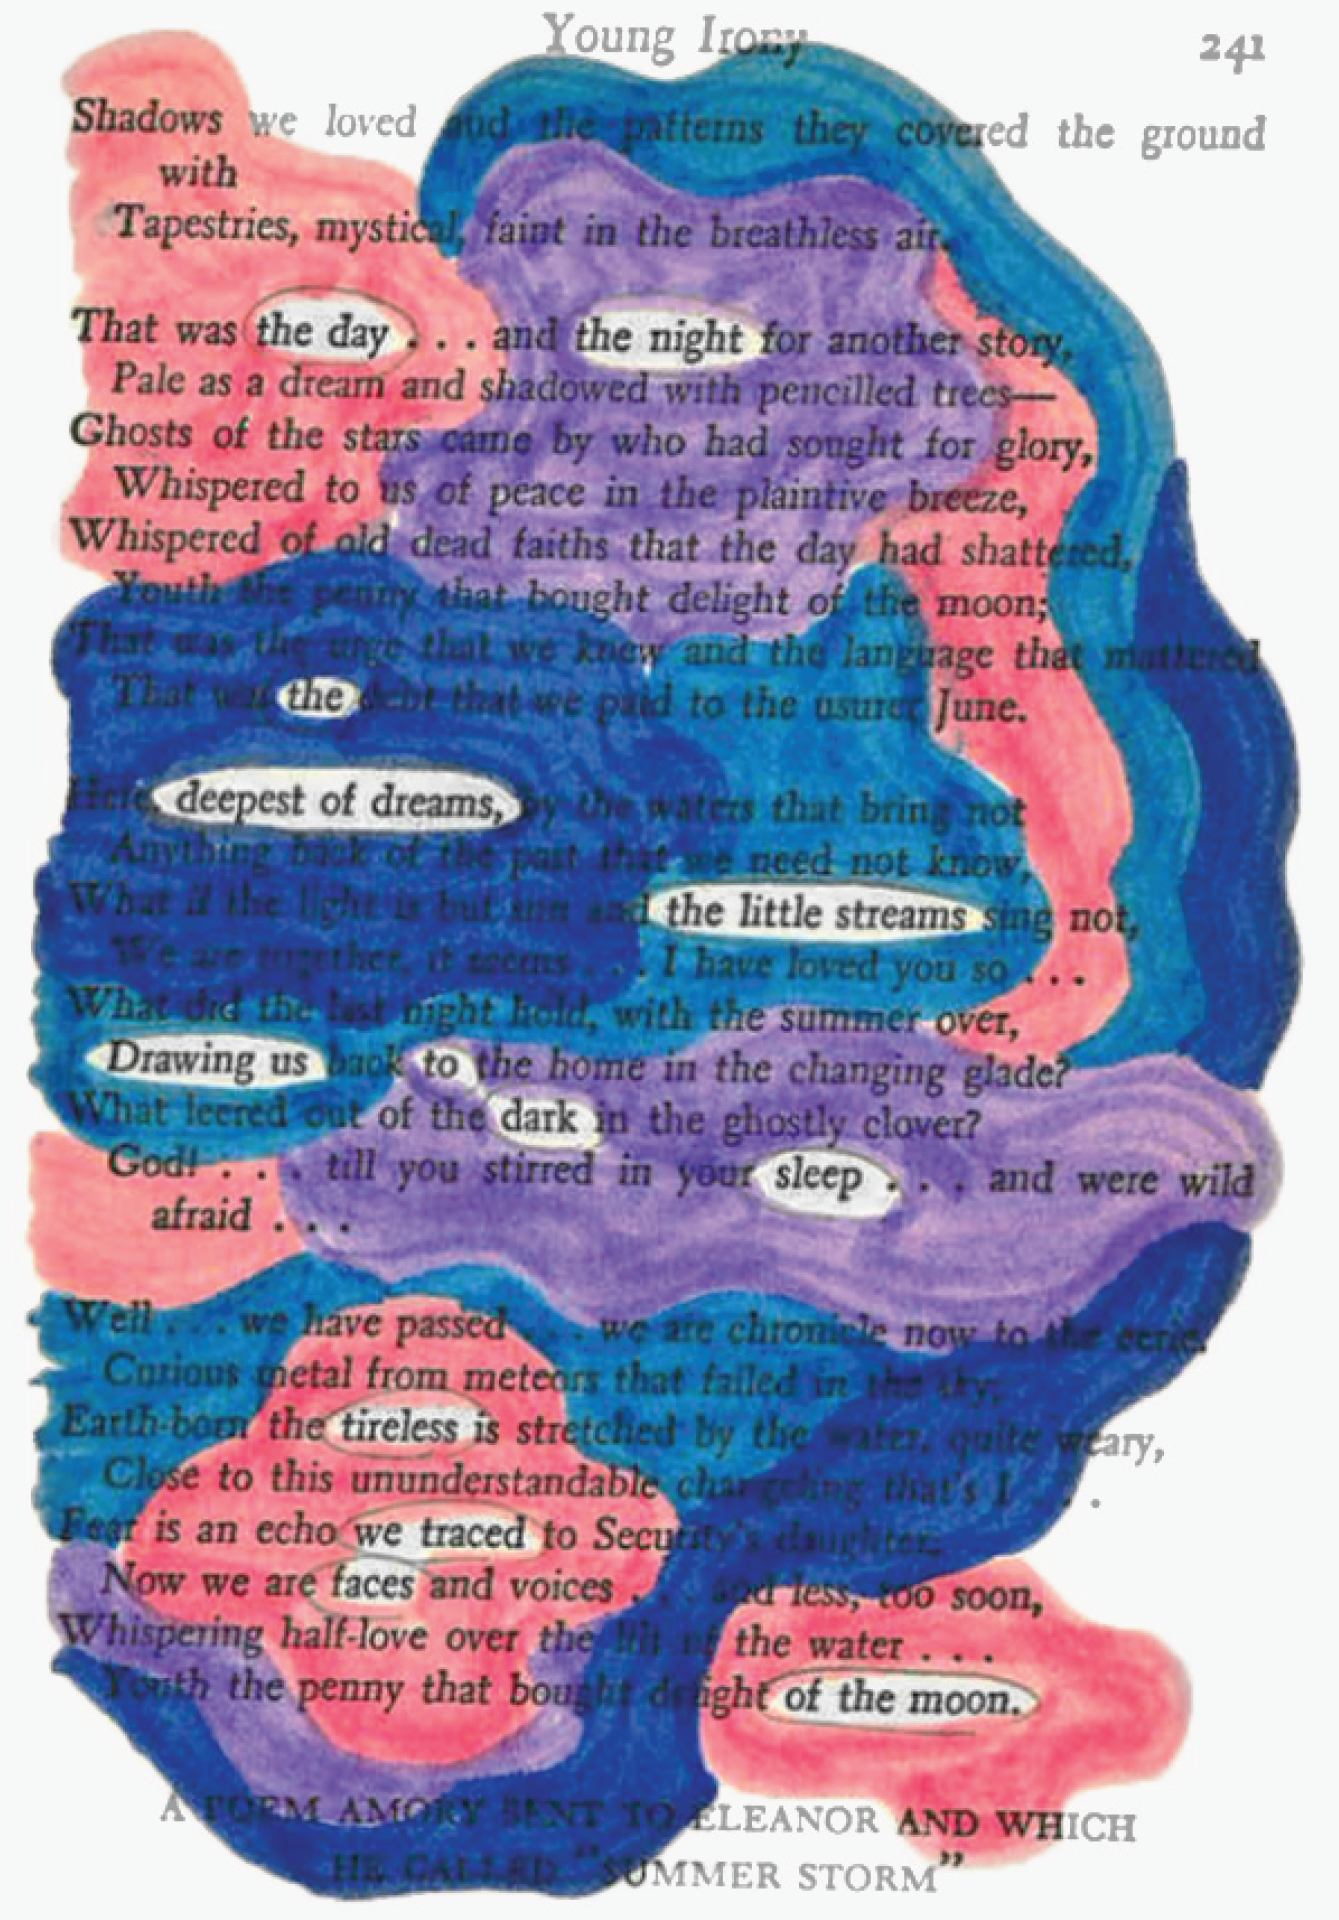 Young Irony 241
Shadows we loved and the patterns they covered the ground
with
Tapestries, mystical, faint in the breathless air.
That was the day . . . and the night for another story,
Pale as a dream and shadowed with pencilled trees—
Ghosts of the stars came by who had sought for glory,
Whispered to us of peace in the plaintive breeze,
Whispered of old dead faiths that the day had shattered,
Youth the penny that bought delight of the moon;
That was the urge that we knew and the language that mattered
That was the debt that we paid to the usurer June.
Here, deepest of dreams, by the waters that bring not
Anything back of the past that we need not know,
What if the light is but sun and the little streams sing not,
We are together, it seems . . . I have loved you so . . .
What did the last night hold, with the summer over,
Drawing us back to the home in the changing glade?
What leered out of the dark in the ghostly clover?
God! . . . till you stirred in your sleep . . . and were wild
afraid . . .
Well . . . we have passed . . . we are chronicle now to the eerie.
Curious metal from meteors that failed in the sky;
Earth-born the tireless is stretched by the water, quite weary,
Close to this ununderstandable changeling that's I . . .
Fear is an echo we traced to Security's daughter;
Now we are faces and voices . . . and less, too soon,
Whispering half-love over the lilt of the water . . .
Youth the penny that bought delight of the moon.
A POEM AMORY SENT TO ELEANOR AND WHICH
HE CALLED "SUMMER STORM"